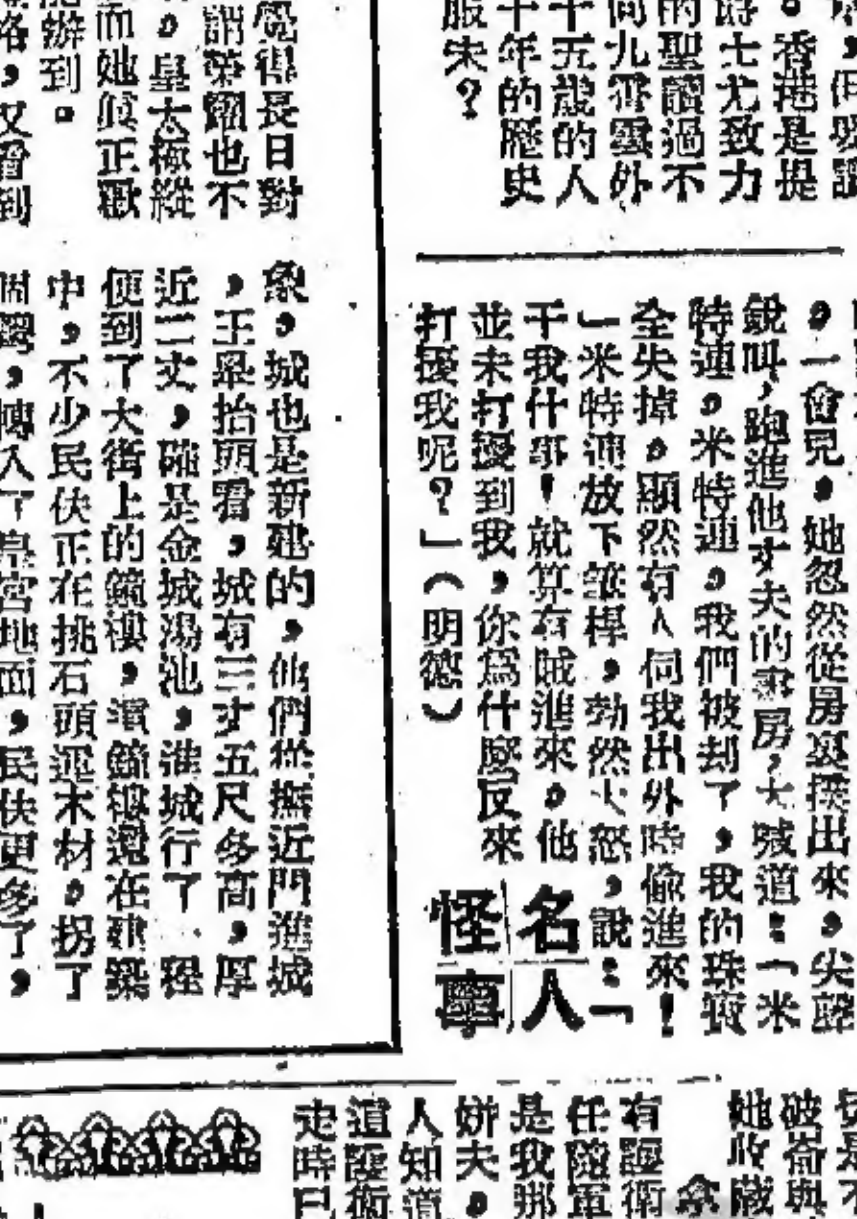 香港是提
士尤致力
的聖讀過不
九霄雲外
十五歲的人
十年的歷史
服未?
,一會兒,她忽然從房裏撲出來,尖聲
銳叫,跑進他丈夫的書房,大喊道:「米
特連,米特連,我們被刧了,我的珠寶
全失掉,顯然有人伺我出外時偷進來!
」米特連放下筆桿,勃然大怒,說:「
干我什事!就算有賊進來,他
並未打擾到我,你爲什麼反來
打擾我呢?」(明德)
名人
怪事
覺得長日對
謂榮耀也不
。皇太極縱
而她眞正歡
能辦到。
,又看到
象,城也是新建的,他們從撫近門進城
,王皋抬頭看,城有三丈五尺多高,厚
近二丈,確是金城湯池,進城行了一程
便到了大街上的鐘樓,這鐘樓還在建築
中,不少民伕正在挑石頭運木材,拐了
個彎,轉入了皇宮地面,民伕更多了,
她收藏
有護衛
任隨軍
是我那
姘夫,
人知道
道護衛
走時已